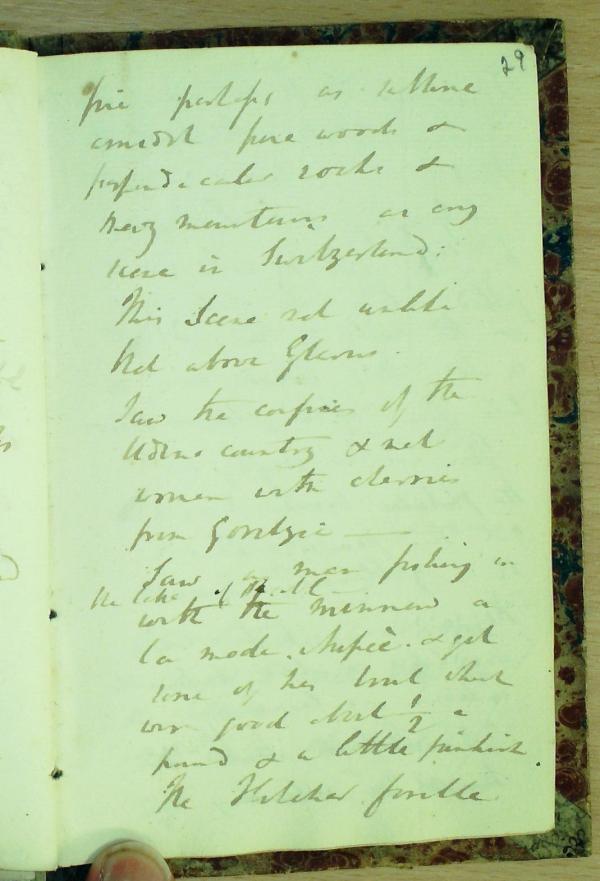 29
fine perhaps as
amidst pine woods &
perpendicular rocks &
mountains as any
scene in Switzerland;
This Scene not unlike
that above Glarus.
Saw the confines of the
Udine country & met
women with cherries
from
Saw a man fishing in
the lake of
with the minnow a
la mode. & got
some of his trout which
were good about ½ a
pound & a little pinkish
The